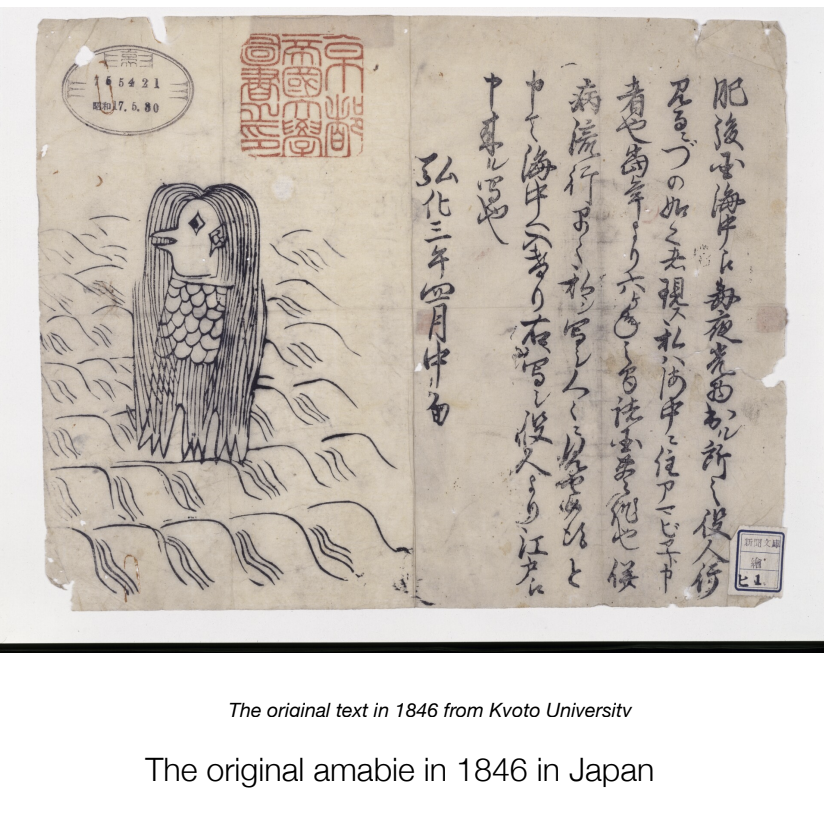 肥後国海中え毎夜光物出ル所之役人行
見るニづの如く者現ス私ハ海中ニ住アマビヱト申
者也当年より六ヶ年之間諸国豊作也併
病流行早々私シ写シ人々ニ見セ候得と
申て海中へ入けり右写シ役人より江戸え
申来ル写也
弘化三年四月中旬
京都
帝國大學
圖書之印
165421
昭和17.5.30
新聞文庫
繪
ヒ 1
The original text in 1846 from Kyoto University
The original amabie in 1846 in Japan